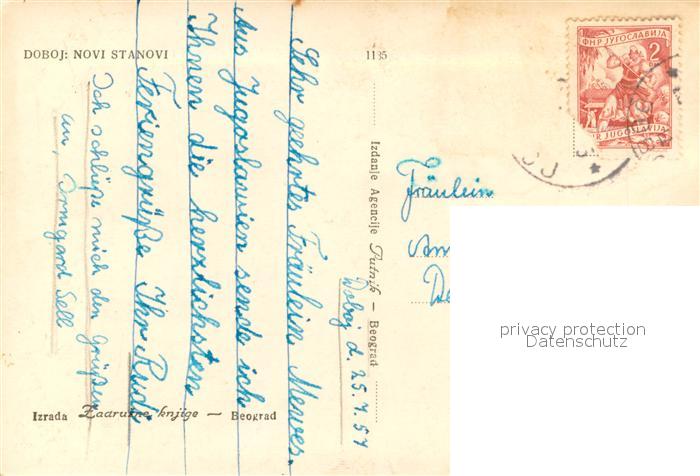 DOBOJ: NOVI STANOVI
1135
Doboj d. 25.7.57
Sehr geehrtes Fräulein Mewes.
Aus Jugoslavien sende ich
Ihnen die herzlichsten
Feriengrüße Ihr Rudi
Ich schließe mich den Grüßen
an, Irmgard Sell
Izdanje Agencije Putnik — Beograd
Izrada Zadružne knjige — Beograd
ФНР ЈУГОСЛАВИЈА
2
FNR JUGOSLAVIJA
Fräulein
privacy protection
Datenschutz